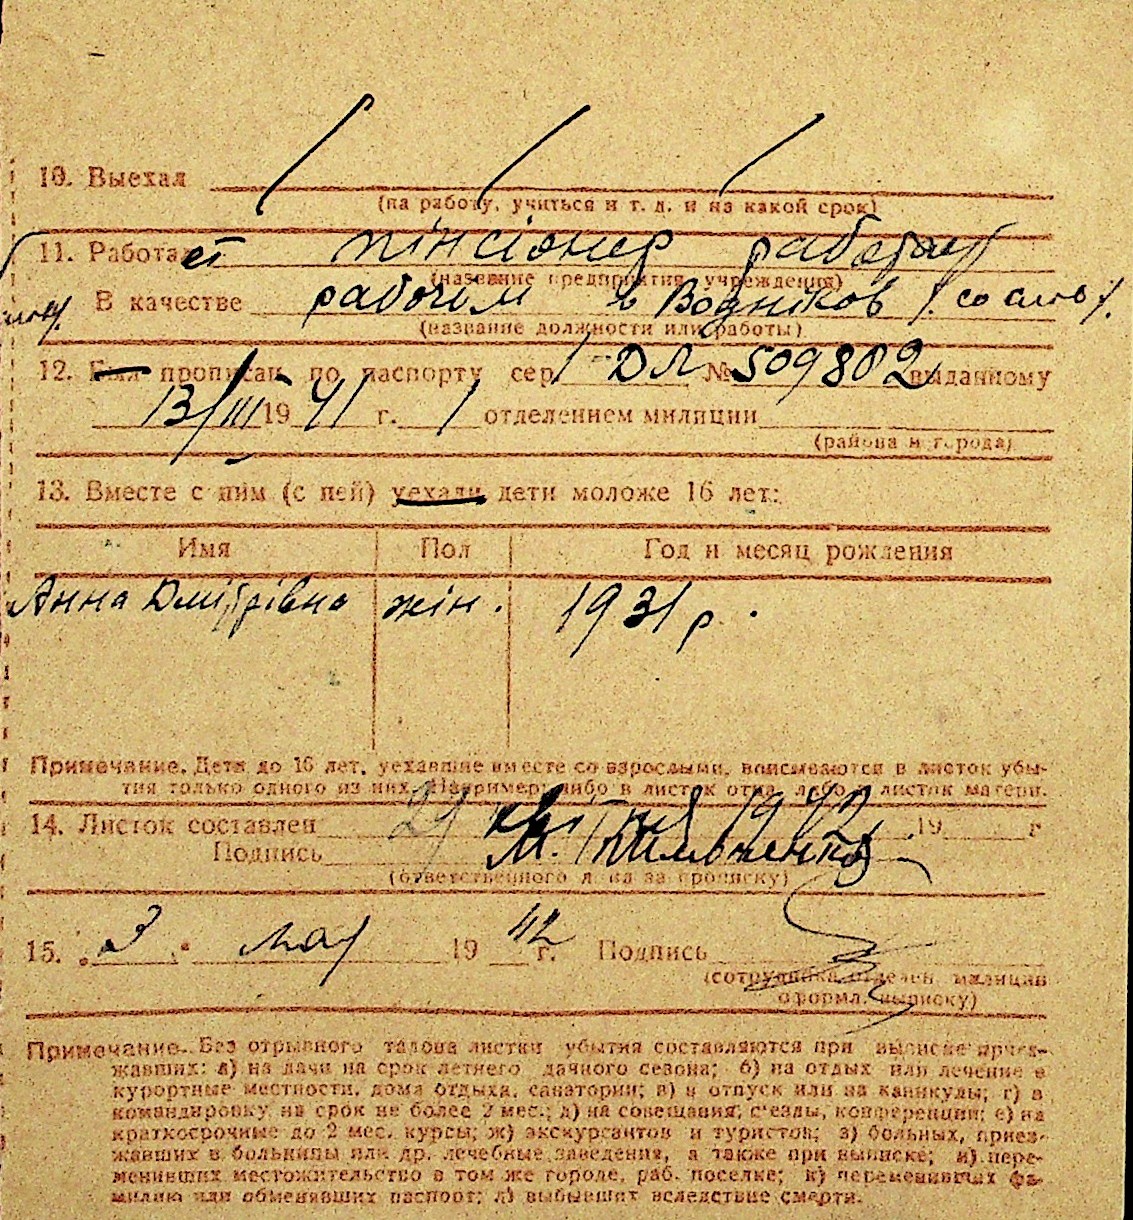 10. Выехал
(на работу, учиться и т. д. и на какой срок)
11. Работает пінсіонер работал
(название предприятия, учреждения)
В качестве рабочим в Водніков (со слов).
(название должности или работы)
12. Был прописан по паспорту сер. ДЛ № 509802 выданному
13/III 1941 г. 1 отделением милиции
(района и города)
13. Вместе с ним (с ней) уехали дети моложе 16 лет:
Имя Пол Год и месяц рождения
Анна Дмитрівна жін. 1931 р.
Примечание. Дети до 16 лет, уехавшие вместе со взрослыми, вписываются в листок убы-
тия только одного из них. Например: либо в листок отца, либо в листок матери.
14. Листок составлен 29 квітня 1942 19 г
Подпись М.
(ответственного лица за прописку)
15. 3 мая 1942 г. Подпись
(сотрудника отделен. милиции
оформл. выписку)
Примечание. Без отрывного талона листки убытия составляются при выписке приез-
жавших: а) на дачи на срок летнего дачного сезона; б) на отдых или лечение в
курортные местности, дома отдыха, санатории; в) в отпуск или на каникулы; г) в
командировку на срок не более 2 мес.; д) на совещания, с'езды, конференции; е) на
краткосрочные до 2 мес. курсы; ж) экскурсантов и туристов; з) больных, приез-
жавших в больницы или др. лечебные заведения, а также при выписке; и) пере-
менивших местожительство в том же городе, раб. поселке; к) переменивших фа-
милию или обменявших паспорт; л) выбывших вследствие смерти.